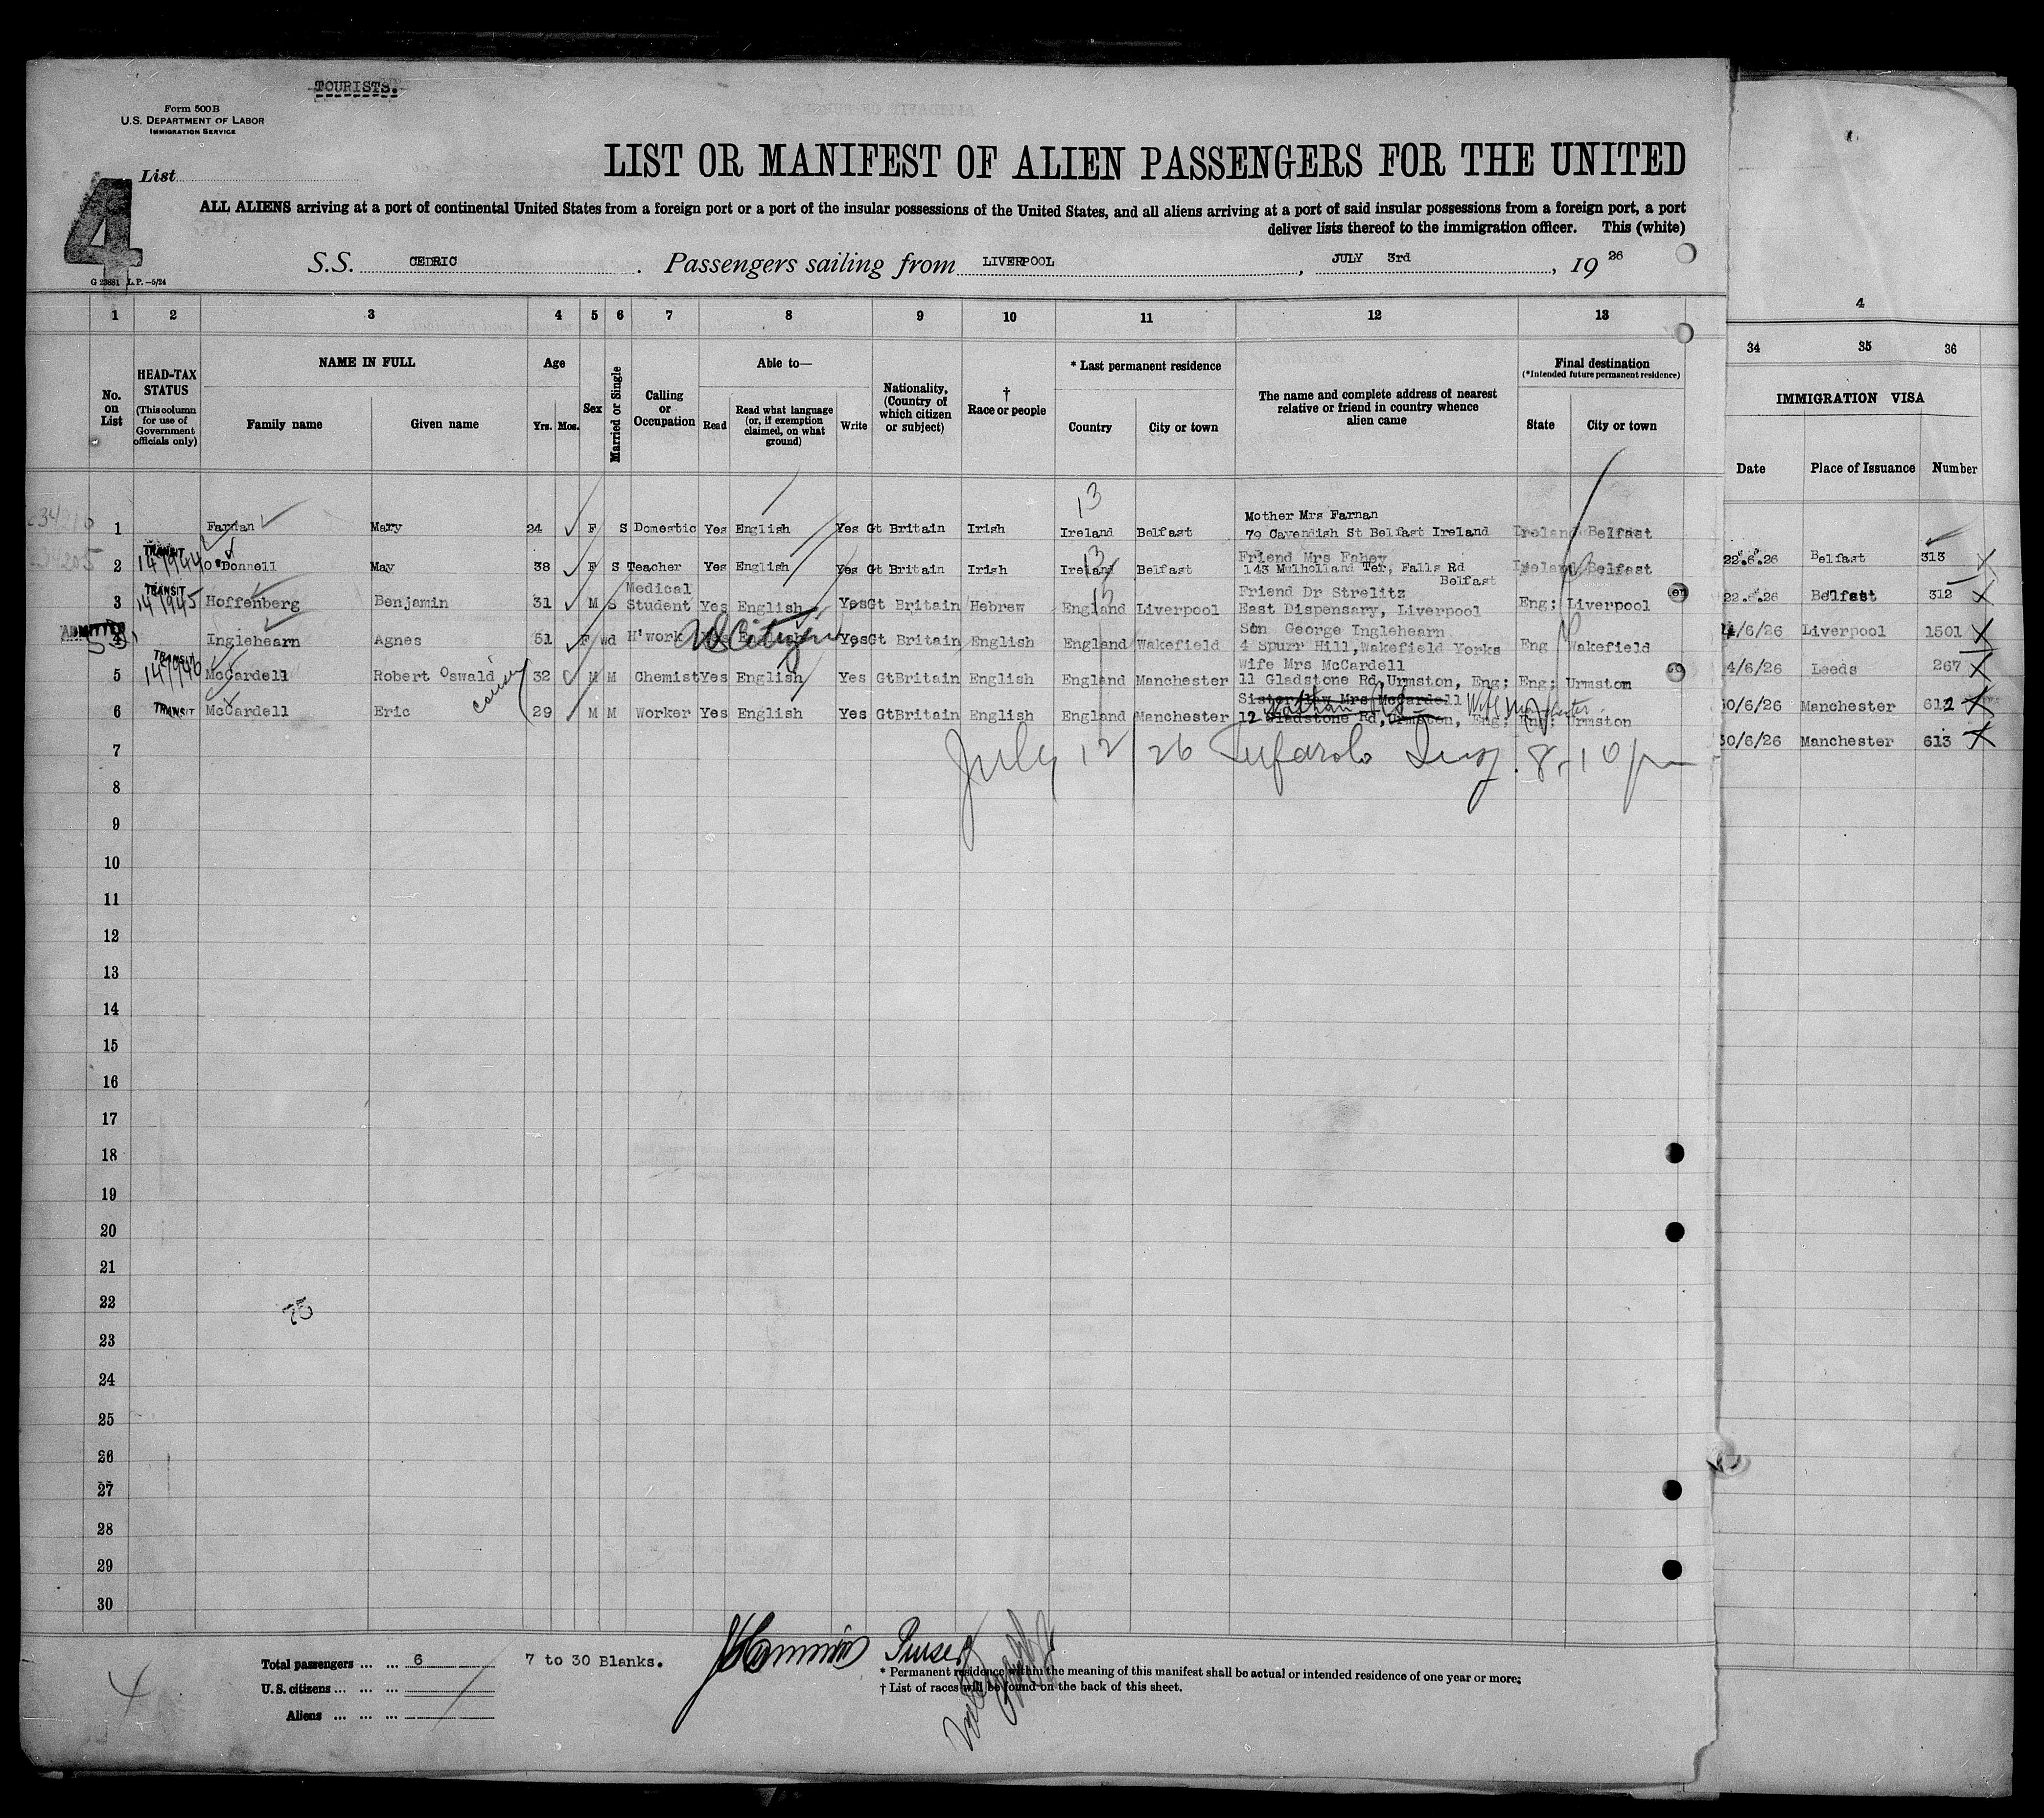 TOURISTS.
Form 500 B
U.S. DEPARTMENT OF LABOR
IMMIGRATION SERVICE
4
List
LIST OR MANIFEST OF ALIEN PASSENGERS FOR THE UNITED
ALL ALIENS arriving at a port of continental United States from a foreign port or a port of the insular possessions of the United States, and all aliens arriving at a port of said insular possessions from a foreign port, a port
deliver lists thereof to the immigration officer. This (white)
S.S. CEDRIC. Passengers sailing from LIVERPOOL, JULY 3rd, 19 26
G 23881 L.P.—5/24
4
1 2 3 4 5 6 7 8 9 10 11 12 13
34 35 36
No. on List
HEAD-TAX STATUS (This column for use of Government officials only)
NAME IN FULL
Family name Given name
Age
Yrs. Mos.
Sex
Married or Single
Calling or Occupation
Able to—
Read
Read what language (or, if exemption claimed, on what ground)
Write
Nationality, (Country of which citizen or subject)
† Race or people
* Last permanent residence
Country City or town
The name and complete address of nearest relative or friend in country whence alien came
Final destination
(*Intended future permanent residence)
State City or town
IMMIGRATION VISA
Date Place of Issuance Number
13
1 Farnan Mary 24 F S Domestic Yes English Yes Gt Britain Irish Ireland Belfast Mother Mrs Farnan 79 Cavendish St Belfast Ireland Ireland Belfast
TRANSIT 147944
2 O'Donnell May 38 F S Teacher Yes English Yes Gt Britain Irish Ireland Belfast Friend Mrs Fahey 143 Mulholland Ter, Falls Rd Belfast Ireland Belfast
22.6.26 Belfast 313
TRANSIT 147945
3 Hoffenberg Benjamin 31 M S Medical Student Yes English Yes Gt Britain Hebrew England Liverpool Friend Dr Strelitz East Dispensary, Liverpool Eng; Liverpool
22.6.26 Belfast 312
ADMITTED
4 Inglehearn Agnes 51 F wd H'work Yes English Yes Gt Britain English England Wakefield Son George Inglehearn 4 Spurr Hill, Wakefield Yorks Eng Wakefield
US Citizen
/6/26 Liverpool 1501
TRANSIT 147946
5 McCardell Robert Oswald 32 M M Chemist Yes English Yes GtBritain English England Manchester Wife Mrs McCardell 11 Gladstone Rd, Urmston, Eng; Eng; Urmston
4/6/26 Leeds 267
cousin
TRANSIT
6 McCardell Eric 29 M M Worker Yes English Yes GtBritain English England Manchester Sister law Mrs McCardell 12 Gladstone Rd, Urmston, Eng; Eng; Urmston
30/6/26 Manchester 612
30/6/26 Manchester 613
July 12/26 Insp. 8.10 pm
7
8
9
10
11
12
13
14
15
16
17
18
19
20
21
22
23
24
25
26
27
28
29
30
75
Total passengers ... ... 6
U.S. citizens ... ... ...
Aliens ... ... ...
7 to 30 Blanks.
Purser
* Permanent residence within the meaning of this manifest shall be actual or intended residence of one year or more.
† List of races will be found on the back of this sheet.